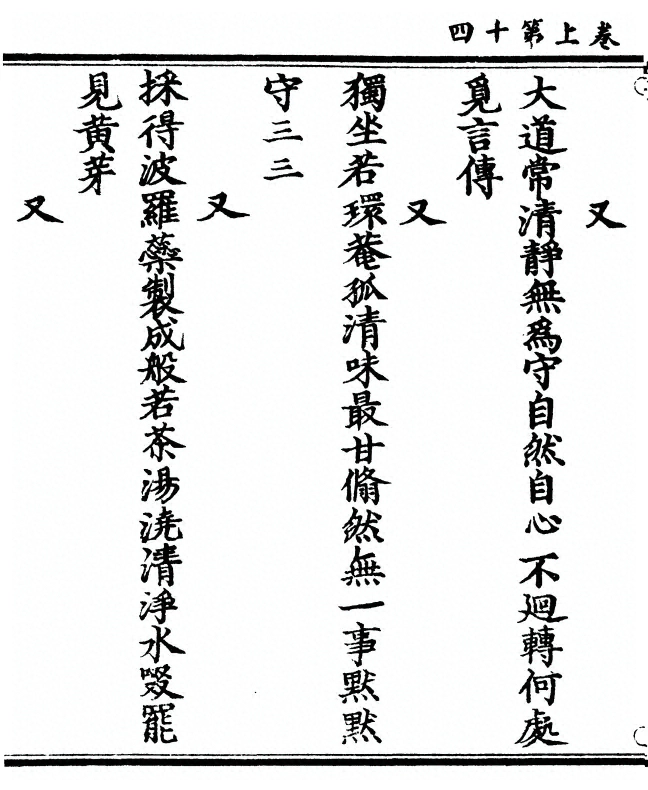 卷上第十四
又
大道常清靜無爲守自然自心不迴轉何處
覓言傳
又
獨坐若環菴孤清味最甘翛然無一事默默
守三三
又
採得波羅蘂製成般若茶湯澆清淨水啜罷
見黃芽
又